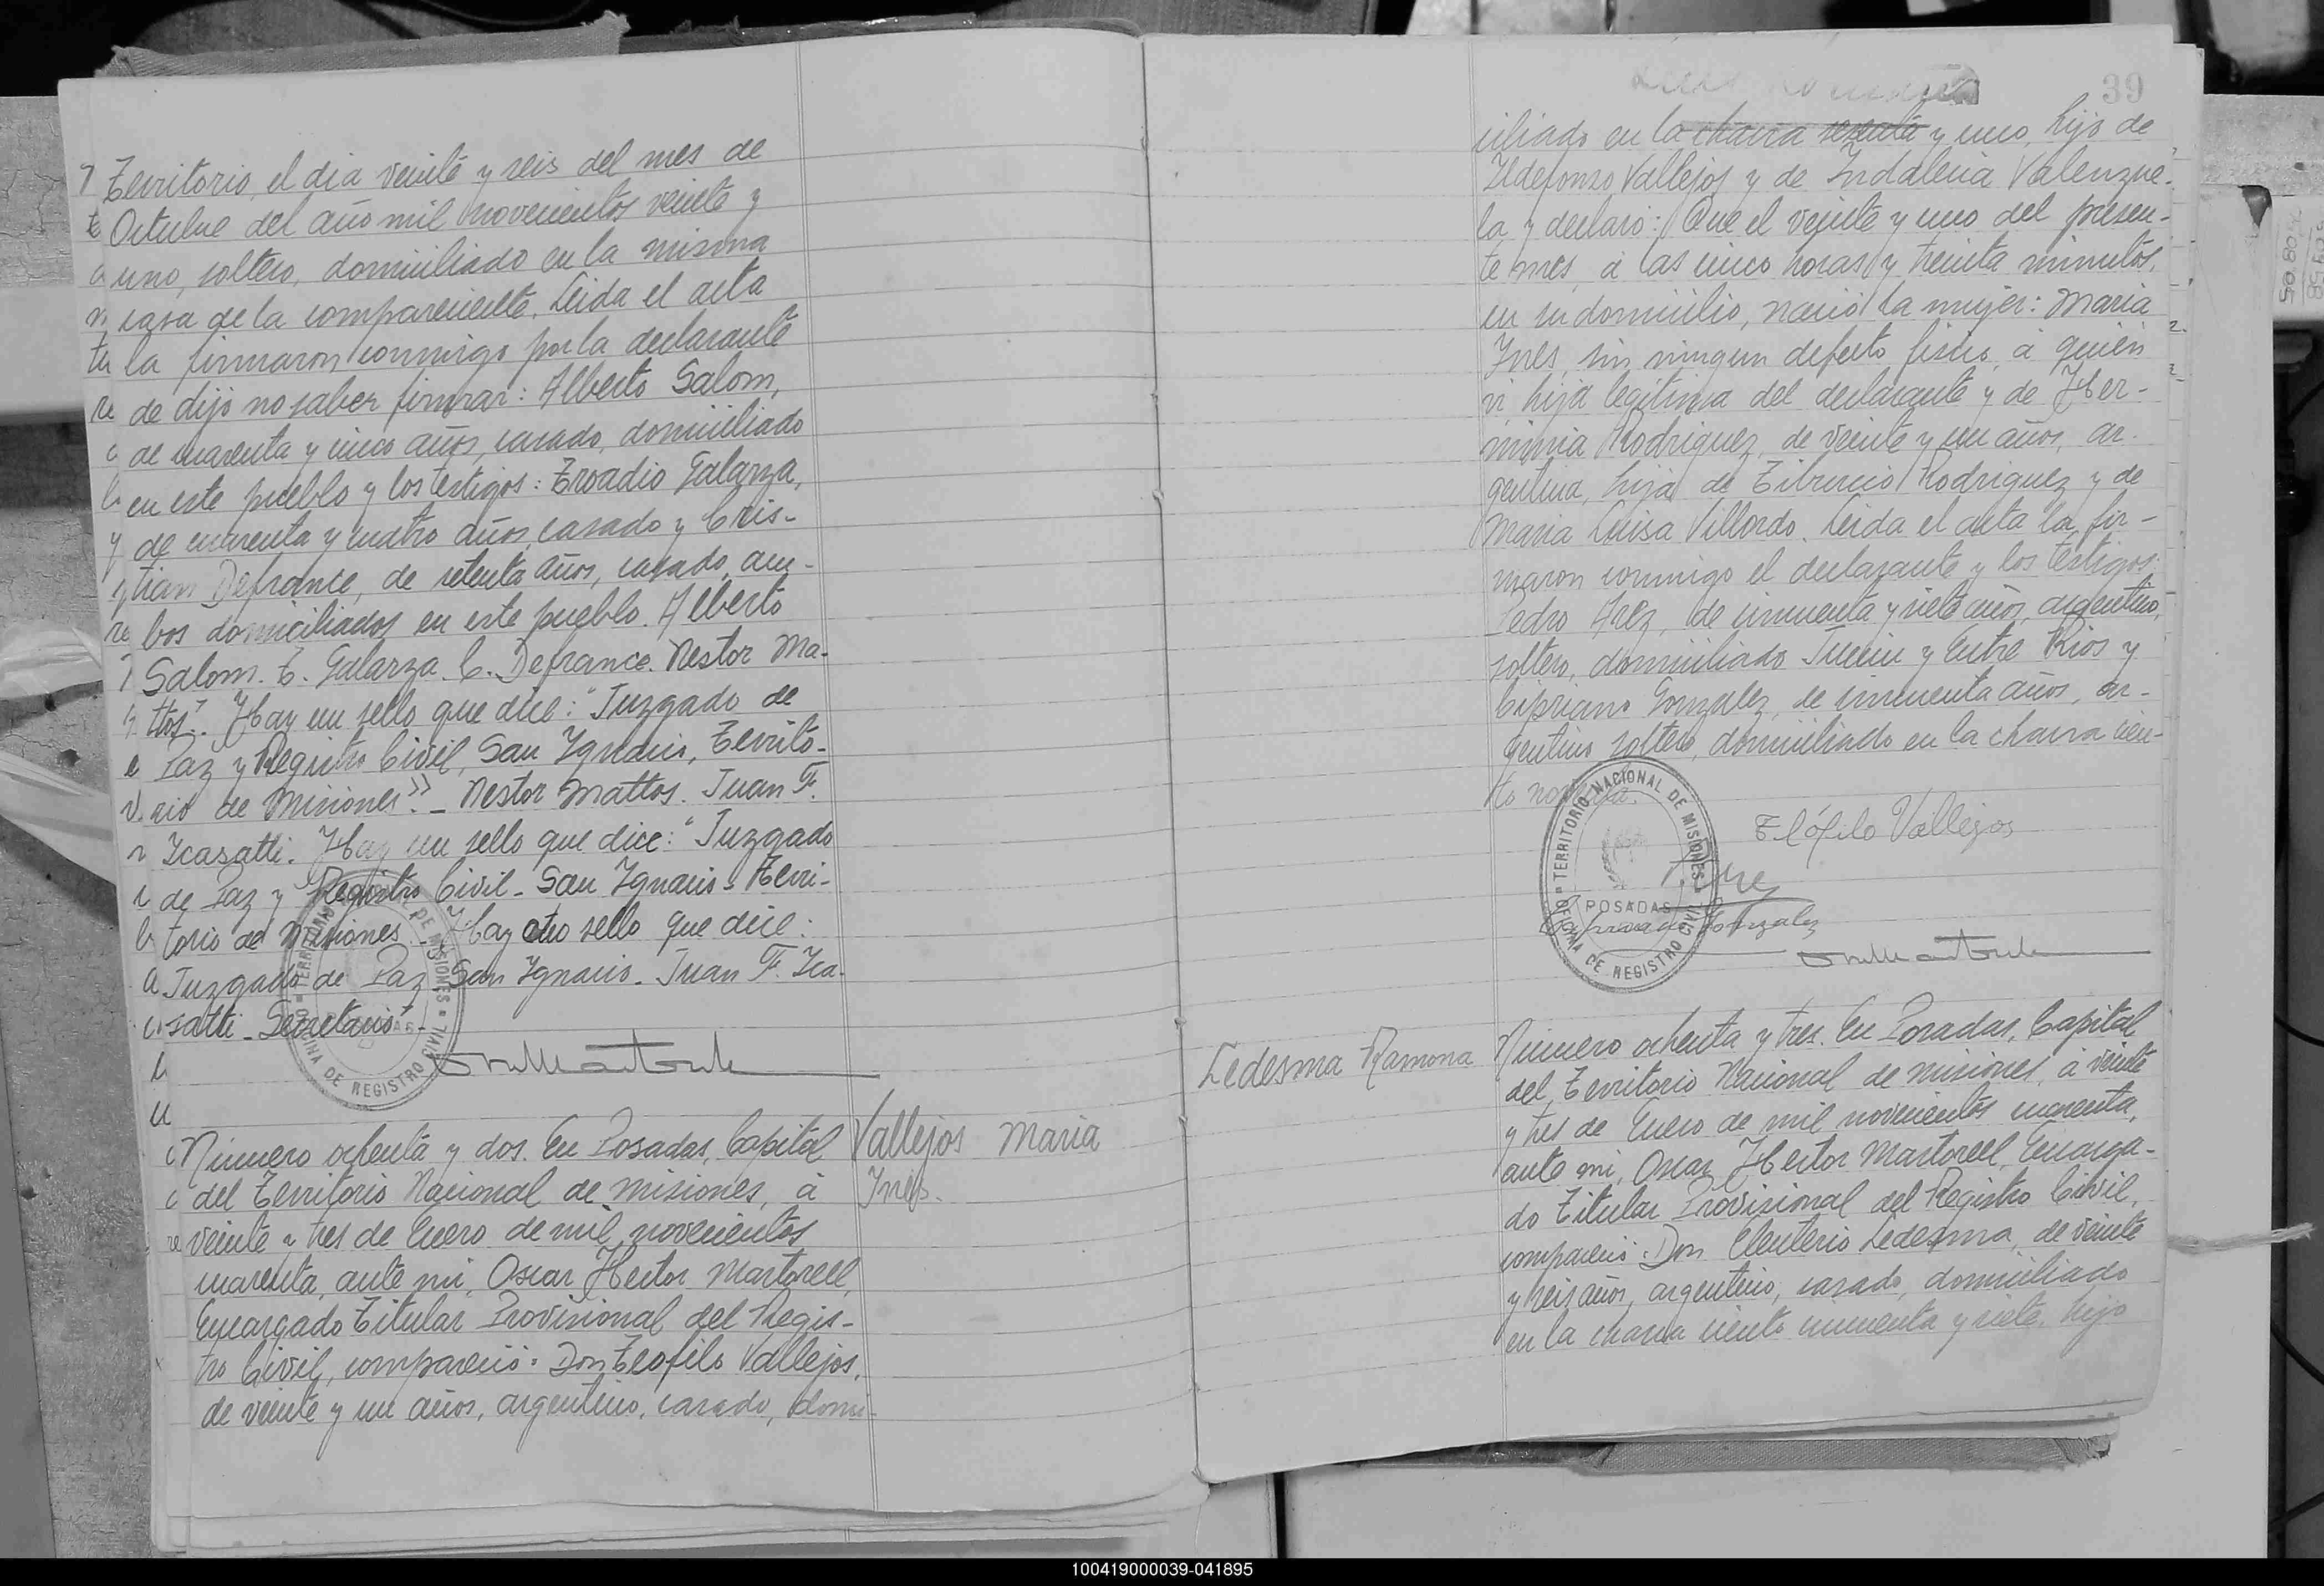 Territorio, el dia veinte y seis del mes de
Octubre del año mil novecientos veinte y
uno, soltero, domiciliado en la misma
casa de la compareciente. Leida el acta
la firmaron conmigo por la declarante
de dijo no saber firmar: Alberto Salom,
de cuarenta y cinco años, casado, domiciliado
en este pueblo y los testigos: Eroadio Galarza,
de cincuenta y cuatro años, casado y Cris-
tian Defrance, de setenta años, casado, am-
bos domiciliados en este pueblo. Alberto
Salom. E. Galarza. C. Defrance. Nestor Ma-
ttos". Hay un sello que dice: "Juzgado de
Paz y Registro Civil, San Ygnacio, Territo-
rio de Misiones". - Nestor Mattos. Juan F.
Icasatti. Hay un sello que dice: "Juzgado
de Paz y Registro Civil - San Ygnacio - Terri-
torio de Misiones - Hay otro sello que dice:
Juzgado de Paz San Ygnacio - Juan F. Ica-
satti - Secretario" -
OFICINA DE REGISTRO CIVIL
Vallejos Maria
Ines.
Número ochenta y dos. En Posadas, Capital
del Territorio Nacional de Misiones, á
veinte y tres de Enero de mil novecientos
cuarenta, ante mi, Oscar Hector Martorell,
Encargado Titular Provisional del Regis-
tro Civil, compareció: Don Teofilo Vallejos,
de veinte y un años, argentino, casado, domi-
39
ciliado en la chacra sesenta y uno, hijo de
Ildefonzo Vallejos y de Indalecia Valenzue-
la, y declaró: Que el veinte y uno del presen-
te mes, á las cinco horas y treinta minutos,
en su domicilio, nació la mujer: Maria
Ines, sin ningun defecto fisico, á quien
vi hija legitima del declarante y de Her-
minia Rodriguez, de veinte y un años, ar-
gentina, hija de Tiburcio Rodriguez y de
Maria Luisa Villordo. Leida el acta la fir-
maron conmigo el declarante y los testigos:
Pedro Arez, de cincuenta y siete años, argentino,
soltero, domiciliado Junin y Entre Rios y
Cipriano Gonzalez, de cincuenta años, ar-
gentino, soltero, domiciliado en la chacra cien-
to noventa.
TERRITORIO NACIONAL DE MISIONES
POSADAS
OFICINA DE REGISTRO CIVIL
Teófilo Vallejos
Cipriano Gonzalez
Ledesma Ramona
Número ochenta y tres. En Posadas, Capital
del Territorio Nacional de Misiones, á veinte
y tres de Enero de mil novecientos cuarenta,
ante mi, Oscar Hector Martorell, Encarga-
do Titular Provisional del Registro Civil,
compareció: Don Eleuterio Ledesma, de veinte
y seis años, argentino, casado, domiciliado
en la chacra ciento cincuenta y siete, hijo
100419000039-041895